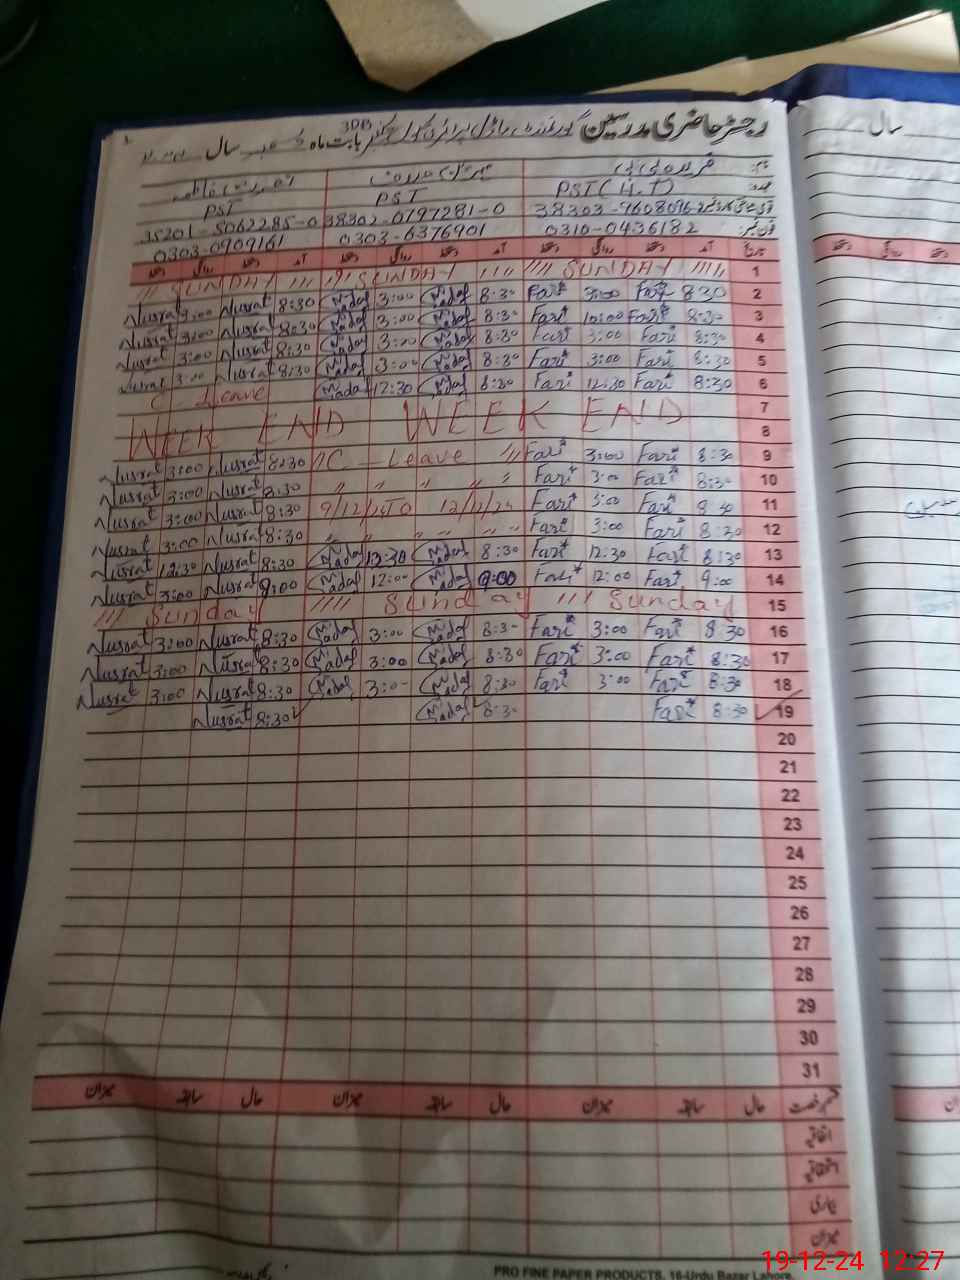 رجسٹر حاضری مدرسین گورنمنٹ ماڈل پرائمری سکول چکنمبر 3DB بابت ماہ دسمبر سال
سال
نام:
PST PST PST (H.T)
35201-5062285-0 38302-0797281-0 38303-9608096-2
0303-0909161 0303-6376901 0310-0436182 فون نمبر:
دستخط روانگی دستخط آمد دستخط روانگی دستخط آمد دستخط روانگی دستخط آمد تاریخ
SUNDAY SUNDAY SUNDAY 1
Nusrat 3:00 Nusrat 8:30 M. Sadaf 3:00 M. Sadaf 8:30 Fari 3:00 Fari 8:30 2
Nusrat 3:00 Nusrat 8:30 M. Sadaf 3:00 M. Sadaf 8:30 Fari 10:00 Fari 8:30 3
Nusrat 3:00 Nusrat 8:30 M. Sadaf 3:00 M. Sadaf 8:30 Fari 3:00 Fari 8:30 4
Nusrat 3:00 Nusrat 8:30 M. Sadaf 3:00 M. Sadaf 8:30 Fari 3:00 Fari 8:30 5
C Leave M. Sadaf 12:30 M. Sadaf 8:30 Fari 12:30 Fari 8:30 6
7
WEEK END WEEK END 8
Nusrat 3:00 Nusrat 8:30 C Leave Fari 3:00 Fari 8:30 9
Nusrat 3:00 Nusrat 8:30 " " " " " Fari 3:00 Fari 8:30 10
Nusrat 3:00 Nusrat 8:30 9/12/24 TO 12/12/24 Fari 3:00 Fari 8:30 11
Nusrat 3:00 Nusrat 8:30 " " " " " Fari 3:00 Fari 8:30 12
Nusrat 12:30 Nusrat 8:30 M. Sadaf 12:30 M. Sadaf 8:30 Fari 12:30 Fari 8:30 13
Nusrat 3:00 Nusrat 9:00 M. Sadaf 12:00 M. Sadaf 9:00 Fari 12:00 Fari 9:00 14
Sunday Sunday Sunday 15
Nusrat 3:00 Nusrat 8:30 M. Sadaf 3:00 M. Sadaf 8:30 Fari 3:00 Fari 8:30 16
Nusrat 3:00 Nusrat 8:30 M. Sadaf 3:00 M. Sadaf 8:30 Fari 3:00 Fari 8:30 17
Nusrat 3:00 Nusrat 8:30 M. Sadaf 3:00 M. Sadaf 8:30 Fari 3:00 Fari 8:30 18
Nusrat 8:30 M. Sadaf 8:30 Fari 8:30 19
20
21
22
23
24
25
26
27
28
29
30
31
میزان سابقہ حال میزان سابقہ حال میزان سابقہ حال قسم رخصت
اتفاقیہ
بیماری
میزان
PRO FINE PAPER PRODUCTS, 16-Urdu Bazar Lahore
19-12-24 12:27